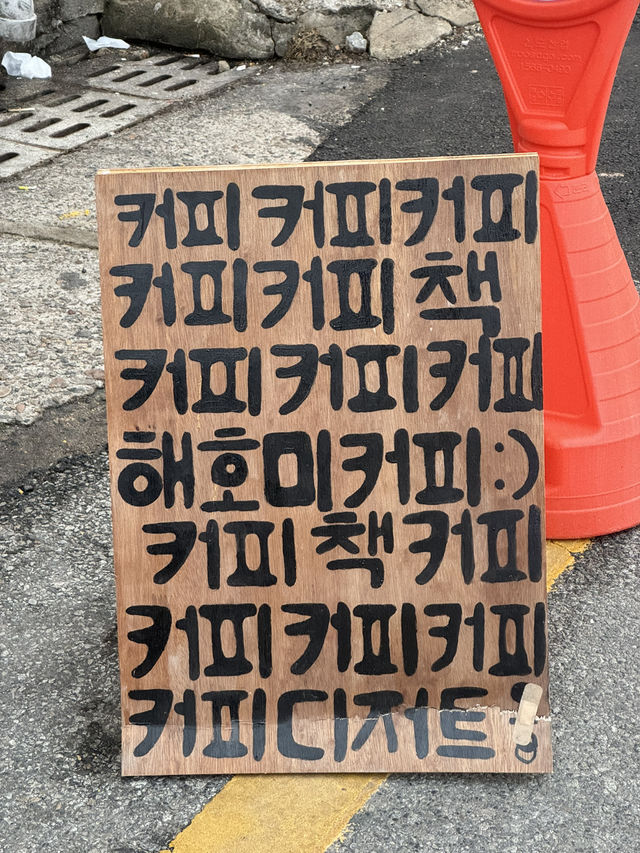 커피 커피 커피
커피 커피 책
커피 커피 커피
해호미 커피 :)
커피 책 커피
커피 커피 커피
커피 디저트